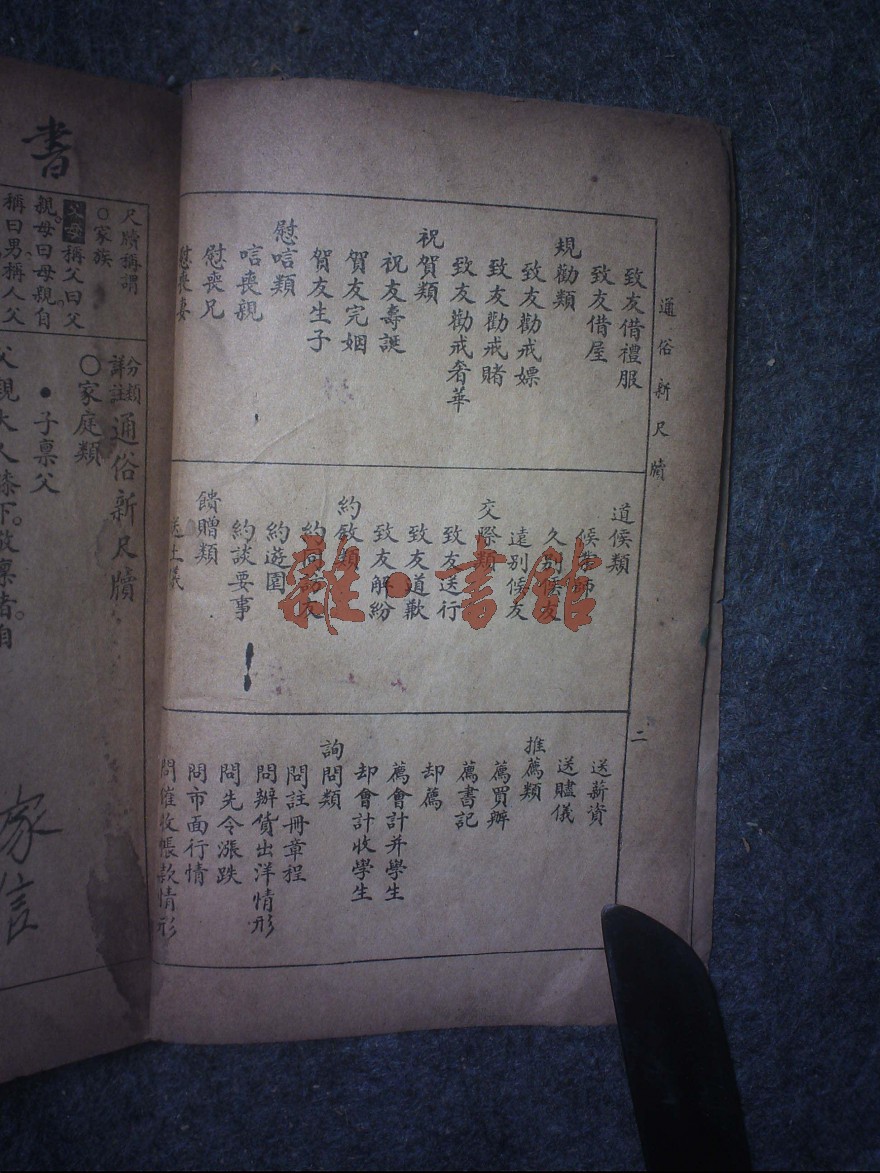 通俗新尺牘
二
致友借禮服
致友借屋
規勸類
致友勸戒嫖
致友勸戒賭
致友勸戒奢華
祝賀類
祝友壽誕
賀友完姻
賀友生子
慰唁類
唁喪親
慰喪兄
慰喪妻
道候類
候業師
久別候友
遠別候友
交際類
致友送行
致友道歉
致友解紛
約敘類
約同訪友
約遊園
約談要事
饋贈類
送土儀
送薪資
送贐儀
推薦類
薦買辦
薦書記
却薦
薦會計并學生
却會計收學生
詢問類
問註冊章程
問辦貨出洋情形
問先令漲跌
問市面行情
問催收帳款情形
雜·書館
書
尺牘稱謂
○家族
父母稱父曰父
親。母曰母親。自
稱曰男。稱人父
分類
詳註
通俗新尺牘
○家庭類
•子稟父
父親大人膝下。敬稟者。自
家信